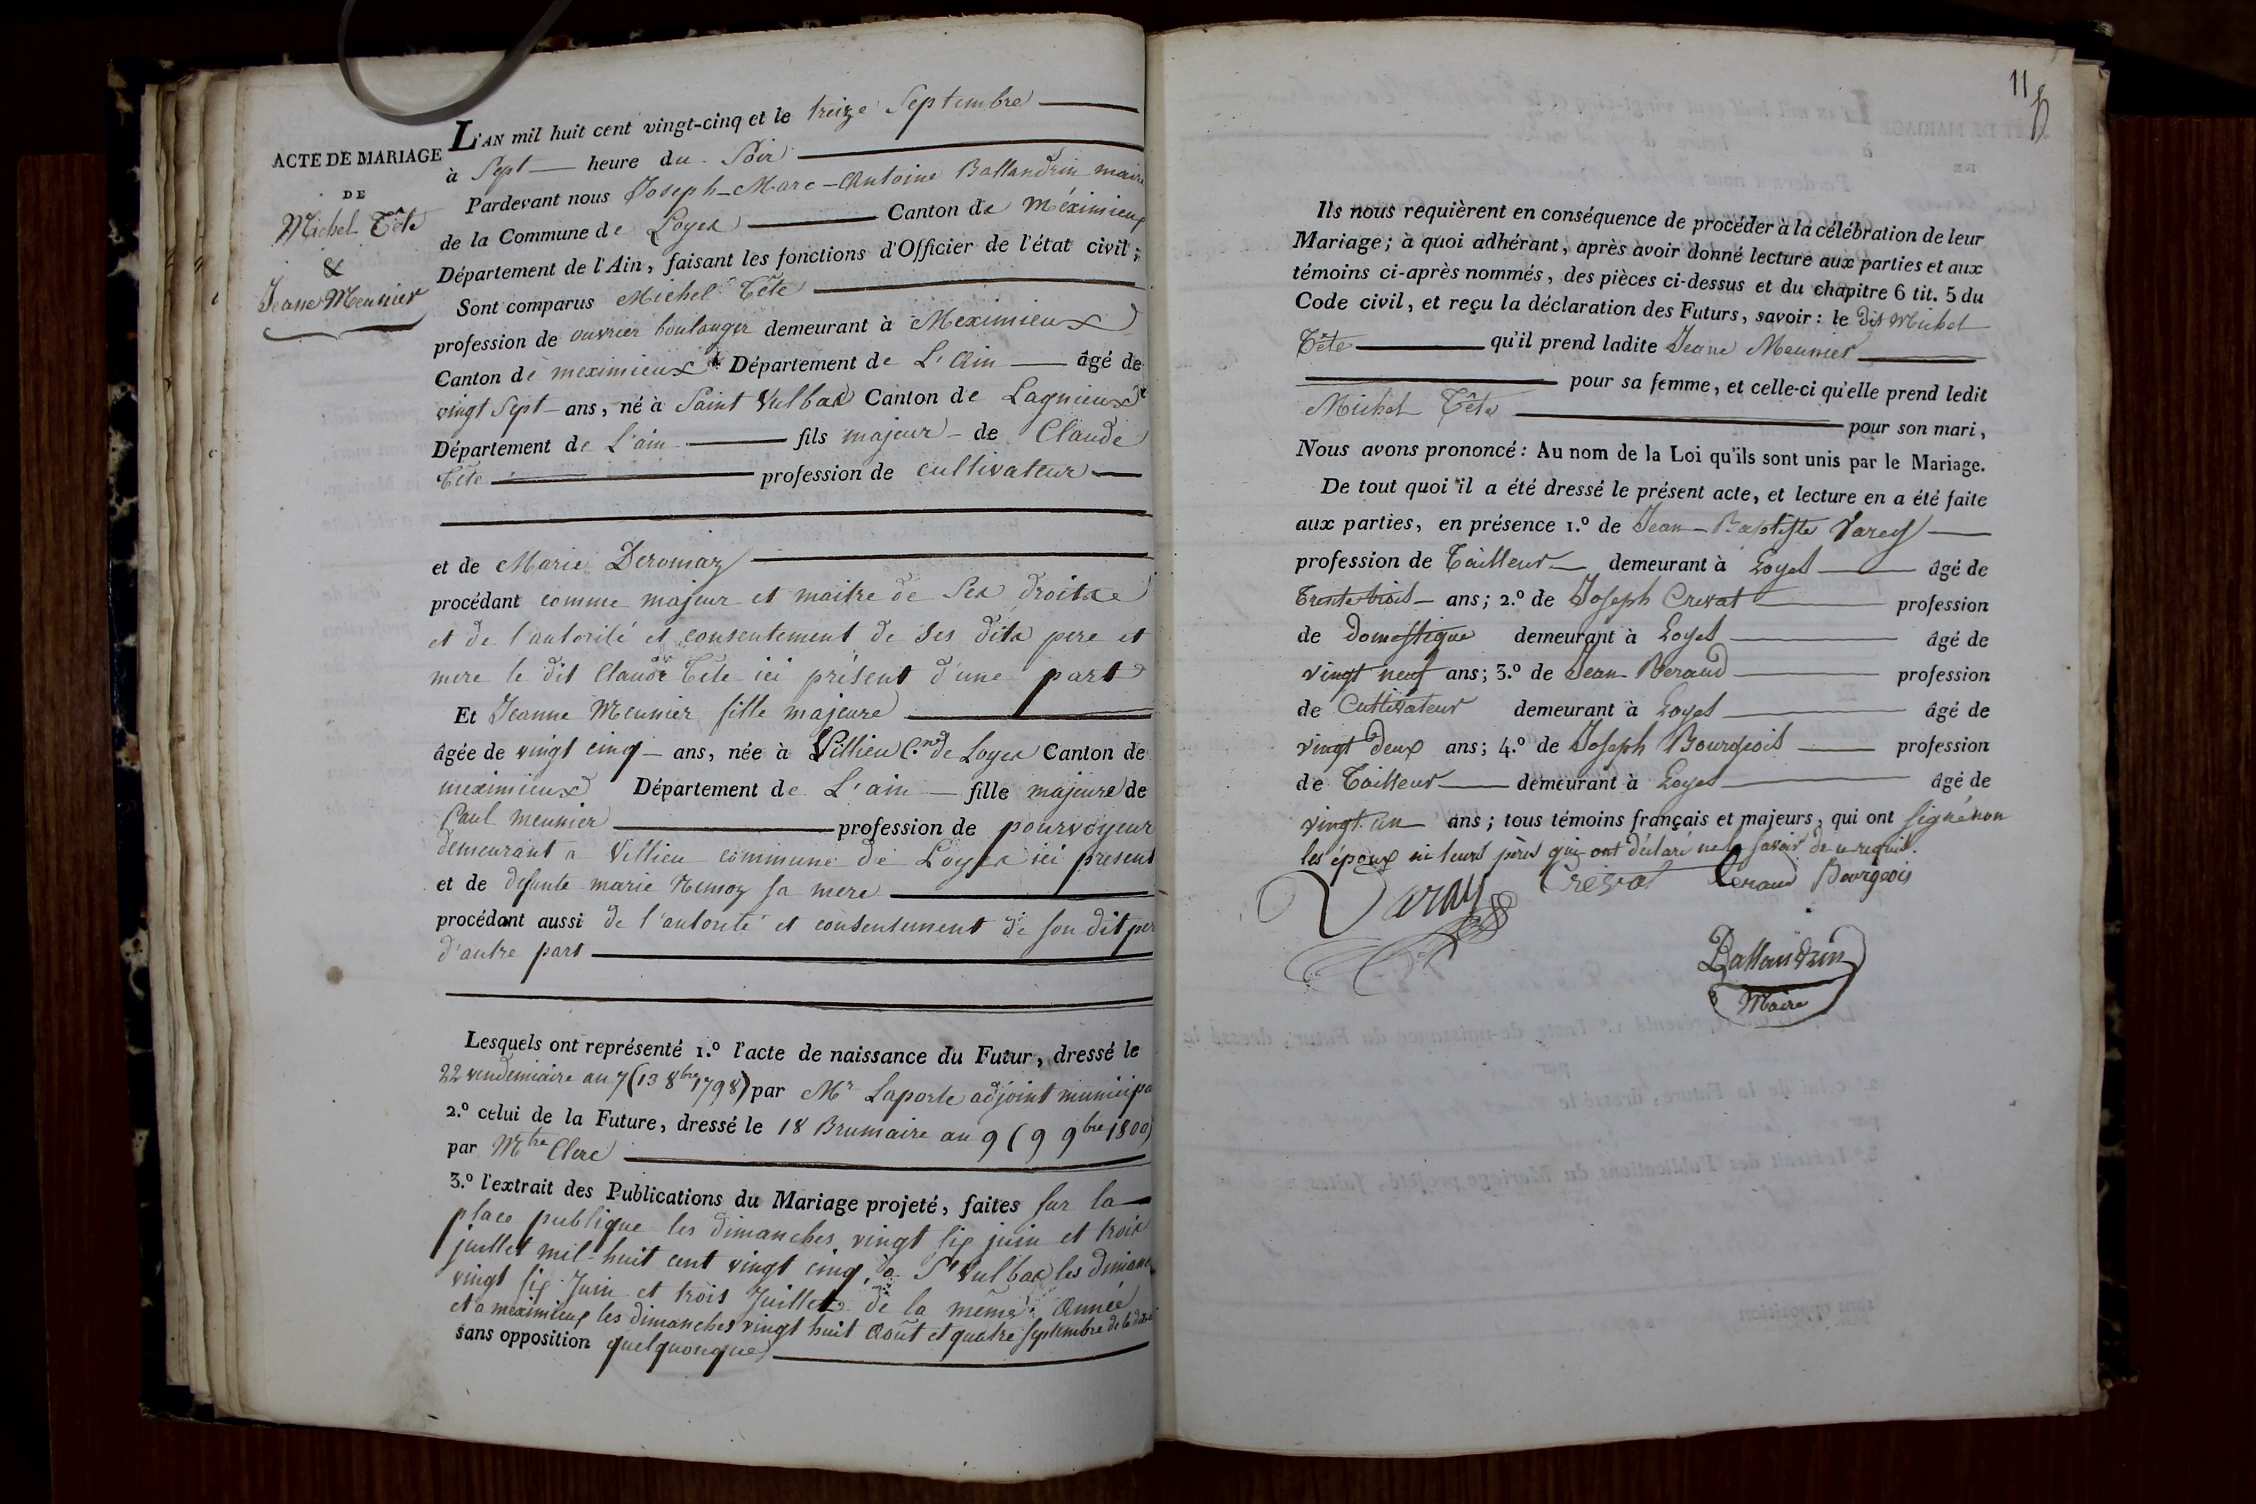 ACTE DE MARIAGE
DE
Michel Tête
&
Jeanne Meunier
L'AN mil huit cent vingt-cinq et le treize Septembre
à Sept heure du Soir
Pardevant nous Joseph-Marc-Antoine Ballandrin maire
de la Commune de Loyes Canton de Méximieux
Département de l'Ain, faisant les fonctions d'Officier de l'état civil;
Sont comparus Michel Tête
profession de ouvrier boulanger demeurant à Meximieux
Canton de meximieux Département de L'Ain âgé de
vingt Sept ans, né à Saint Vulbas Canton de Lagnieux
Département de L'ain fils majeur de Claude
Tête profession de cultivateur
et de Marie Deromaz
procédant comme majeur et maitre de Ses droits
et de l'autorité et consentement de Ses dits pere et
mere le dit Claude Tête ici présent d'une part
Et Jeanne Meunier fille majeure
âgée de vingt cinq ans, née à Villieu C.ne de Loyes Canton de
meximieux Département de L'ain fille majeure de
Paul meunier profession de pourvoyeur
demeurant a Villieu commune de Loyes ici present
et de defunte marie Remoz sa mere
procédant aussi de l'autorité et consentement de son dit per
d'autre part
Lesquels ont représenté 1.º l'acte de naissance du Futur, dressé le
22 vendemiaire an 7 (13 8bre 1798) par Mr Laporte adjoint municipa
2.º celui de la Future, dressé le 18 Brumaire an 9 (9 9bre 1800)
par Mtre Clerc
3.º l'extrait des Publications du Mariage projeté, faites sur la
place publique les dimanches vingt six juin et trois
juillet mil-huit cent vingt cinq, à St Vulbas les dimanc
vingt six Juin et trois Juillet de la même Année
et a meximieux les dimanches vingt huit Août et quatre septembre de la dite
sans opposition quelquonque
11
Ils nous requièrent en conséquence de procéder à la célébration de leur
Mariage; à quoi adhérant, après avoir donné lecture aux parties et aux
témoins ci-après nommés, des pièces ci-dessus et du chapitre 6 tit. 5 du
Code civil, et reçu la déclaration des Futurs, savoir: le dit Michel
Tête qu'il prend ladite Jeane Meunier
pour sa femme, et celle-ci qu'elle prend ledit
Michel Tête pour son mari,
Nous avons prononcé: Au nom de la Loi qu'ils sont unis par le Mariage.
De tout quoi il a été dressé le présent acte, et lecture en a été faite
aux parties, en présence 1.º de Jean-Baptiste Varey
profession de Tailleur demeurant à Loyes âgé de
Trente trois ans; 2.º de Joseph Crevat profession
de domestique demeurant à Loyes âgé de
vingt neuf ans; 3.º de Jean Beraud profession
de Cultivateur demeurant à Loyes âgé de
vingt deux ans; 4.º de Joseph Bourgeois profession
de Tailleur demeurant à Loyes âgé de
vingt un ans; tous témoins français et majeurs, qui ont signé non
les époux ni leurs pères qui ont déclaré ne le savoir de ce requis.
Varay Crevat Beraud Bourgeois
Ballandrin
Maire